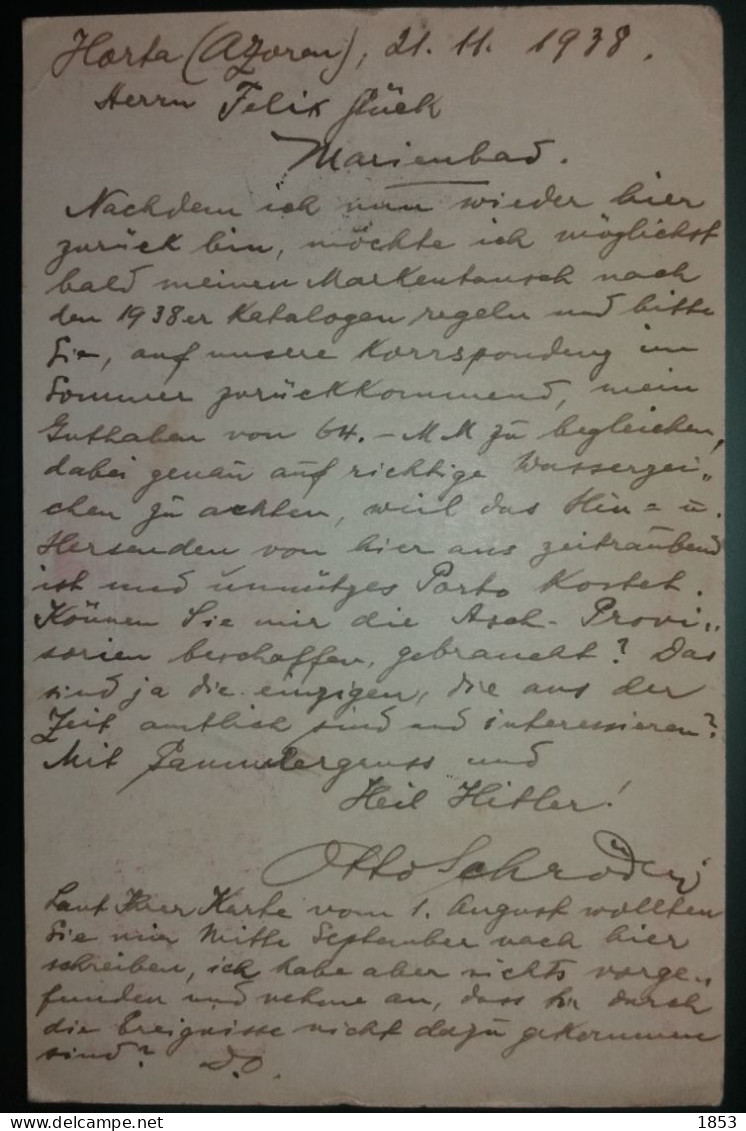 Horta (Azoren), 21. 11. 1938.
Herrn Felix Glück
Marienbad.
Nachdem ich nun wieder hier
zurück bin, möchte ich möglichst
bald meinen Markentausch nach
den 1938er Katalogen regeln und bitte
Sie, auf unsere Korrspondenz im
Sommer zurückkommend, mein
Guthaben von 64.- MM zu begleichen,
dabei genau auf richtige Wasserzei„
chen zu achten, weil das Hin= u.
Hersenden von hier aus zeitraubend
ist und unnützes Porto kostet.
Können Sie mir die Asch-Provi„
sorien beschaffen, gebraucht? Das
sind ja die einzigen, die aus der
Zeit amtlich sind und interessieren?
Mit Sammlergruss und
Heil Hitler!
Otto Schröder
Laut Ihrer Karte vom 1. August wollten
Sie mir Mitte September nach hier
schreiben, ich habe aber nichts vorge„
funden und nehme an, dass Sie durch
die Ereignisse nicht dazu gekommen
sind? D.O.
1853